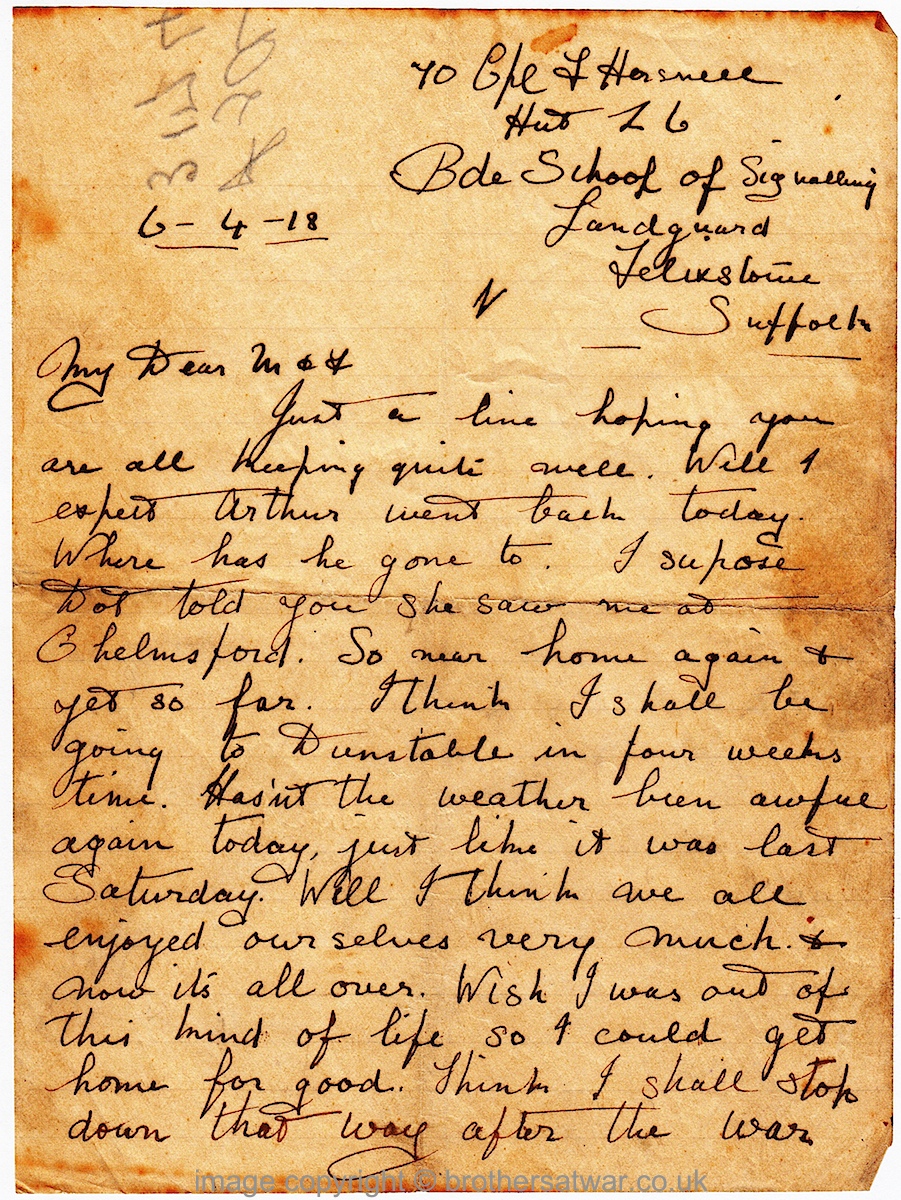 70 Cpl F Horsnell
Hut L 6
Bde School of Signalling
Landguard
Felixstowe
Suffolk
6-4-18
My Dear M & F
Just a line hoping you
are all keeping quite well. Well I
expect Arthur went back today.
Where has he gone to. I supose
Dot told you she saw me at
Chelmsford. So near home again &
yet so far. I think I shall be
going to Dunstable in four weeks
time. Has'nt the weather been awful
again today, just like it was last
Saturday. Well I think we all
enjoyed ourselves very much. &
now its all over. Wish I was out of
this kind of life so I could get
home for good. Think I shall stop
down that way after the war
image copyright © brothersatwar.co.uk